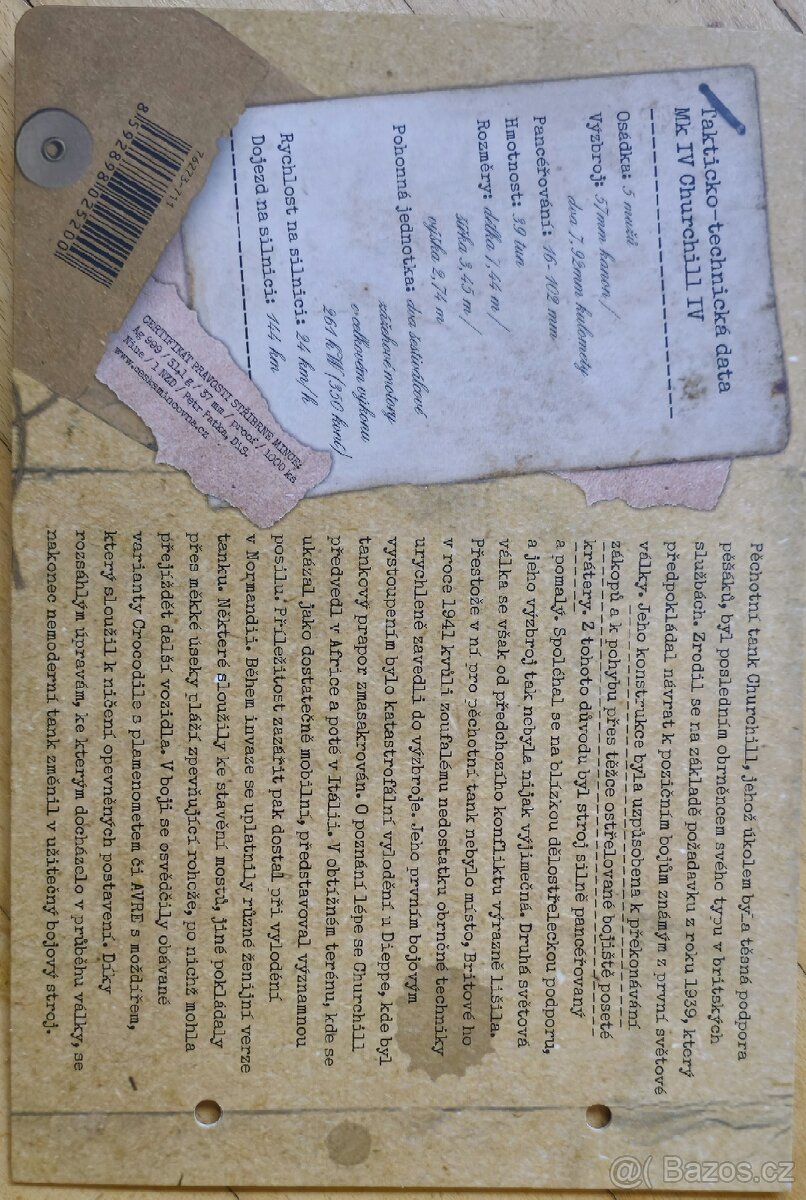 Takticko-technická data
Mk IV Churchill IV
Osádka: 5 mužů
Výzbroj: 57mm kanon /
dva 7,92mm kulomety
Pancéřování: 16-102 mm
Hmotnost: 39 tun
Rozměry: délka 7,44 m /
šířka 3,45 m /
výška 2,74 m
Pohonná jednotka: dva šestiválcové
zážehové motory
o celkovém výkonu
261 kW (350 koní)
Rychlost na silnici: 24 km/h
Dojezd na silnici: 144 km
76273-711
8592898025200
CERTIFIKÁT PRAVOSTI STŘÍBRNÉ MINCE:
Ag 999 / 31,1 g / 37 mm / proof / 1000 ks
Niue / 1 NZD / Petr Patka, DiS.
www.ceskamincovna.cz
Pěchotní tank Churchill, jehož úkolem byla těsná podpora
pěšáků, byl posledním obrněncem svého typu v britských
službách. Zrodil se na základě požadavku z roku 1939, který
předpokládal návrat k pozičním bojům známým z první světové
války. Jeho konstrukce byla uzpůsobena k překonávání
zákopů a k pohybu přes těžce ostřelované bojiště poseté
krátery. Z tohoto důvodu byl stroj silně pancéřovaný
a pomalý. Spoléhal se na blízkou dělostřeleckou podporu,
a jeho výzbroj tak nebyla nijak výjimečná. Druhá světová
válka se však od předchozího konfliktu výrazně lišila.
Přestože v ní pro pěchotní tank nebylo místo, Britové ho
v roce 1941 kvůli zoufalému nedostatku obrněné techniky
urychleně zavedli do výzbroje. Jeho prvním bojovým
vystoupením bylo katastrofální vylodění u Dieppe, kde byl
tankový prapor zmasakrován. O poznání lépe se Churchill
předvedl v Africe a poté v Itálii. V obtížném terénu, kde se
ukázal jako dostatečně mobilní, představoval významnou
posilu. Příležitost zazářit pak dostal při vylodění
v Normandii. Během invaze se uplatnily různé ženijní verze
tanku. Některé sloužily ke stavění mostů, jiné pokládaly
přes měkké úseky pláží zpevňující rohože, po nichž mohla
přejíždět další vozidla. V boji se osvědčily obávané
varianty Crocodile s plamenometem či AVRE s moždířem,
který sloužil k ničení opevněných postavení. Díky
rozsáhlým úpravám, ke kterým docházelo v průběhu války, se
nakonec nemoderní tank změnil v užitečný bojový stroj.
@( Bazos.cz